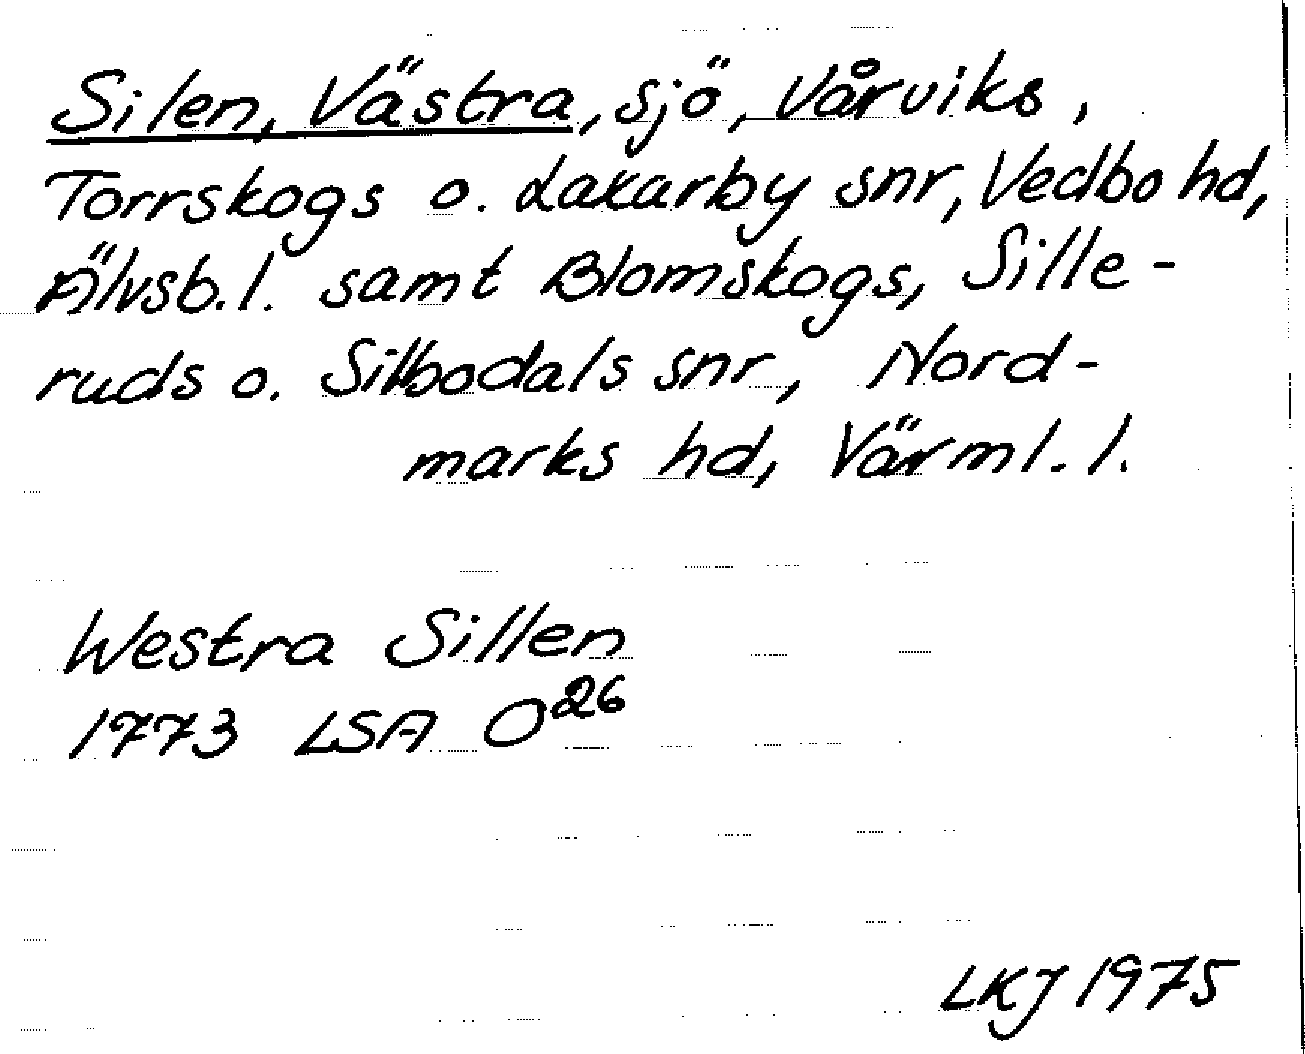 Silen, Västra, sjö, Vårviks,
Torrskogs o. Laxarby snr, Vedbo hd,
Älvsb. l. samt Blomskogs, Sille-
ruds o. Silbodals snr, Nord-
marks hd, Värml. l.
Westra Sillen
1773 LSA O26
LKJ 1975